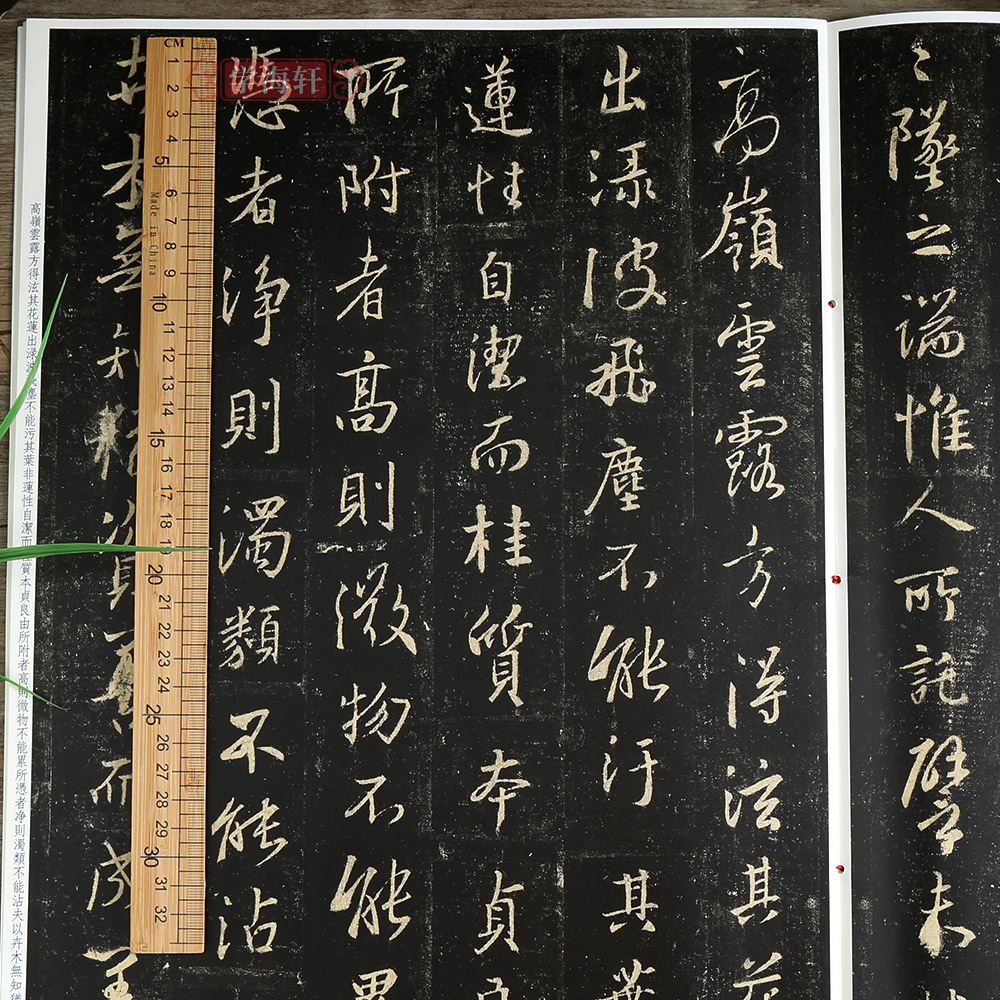 〻墜之端惟人所託譬夫
高嶺雲露方得泫其花
出淥波飛塵不能汙其葉
蓮性自潔而桂質本貞良
所附者高則微物不能累
憑者淨則濁類不能沾
卉木無知猶資善而成善
高嶺雲露方得泫其花蓮出淥波飛塵不能污其葉非蓮性自潔而桂質本貞良由所附者高則微物不能累所憑者净則濁類不能沾夫以卉木無知猶
海轩
CM
1 2 3 4 5 6 7 8 9 10 11 12 13 14 15 16 17 18 19 20 21 22 23 24 25 26 27 28 29 30 31 32
Made in China